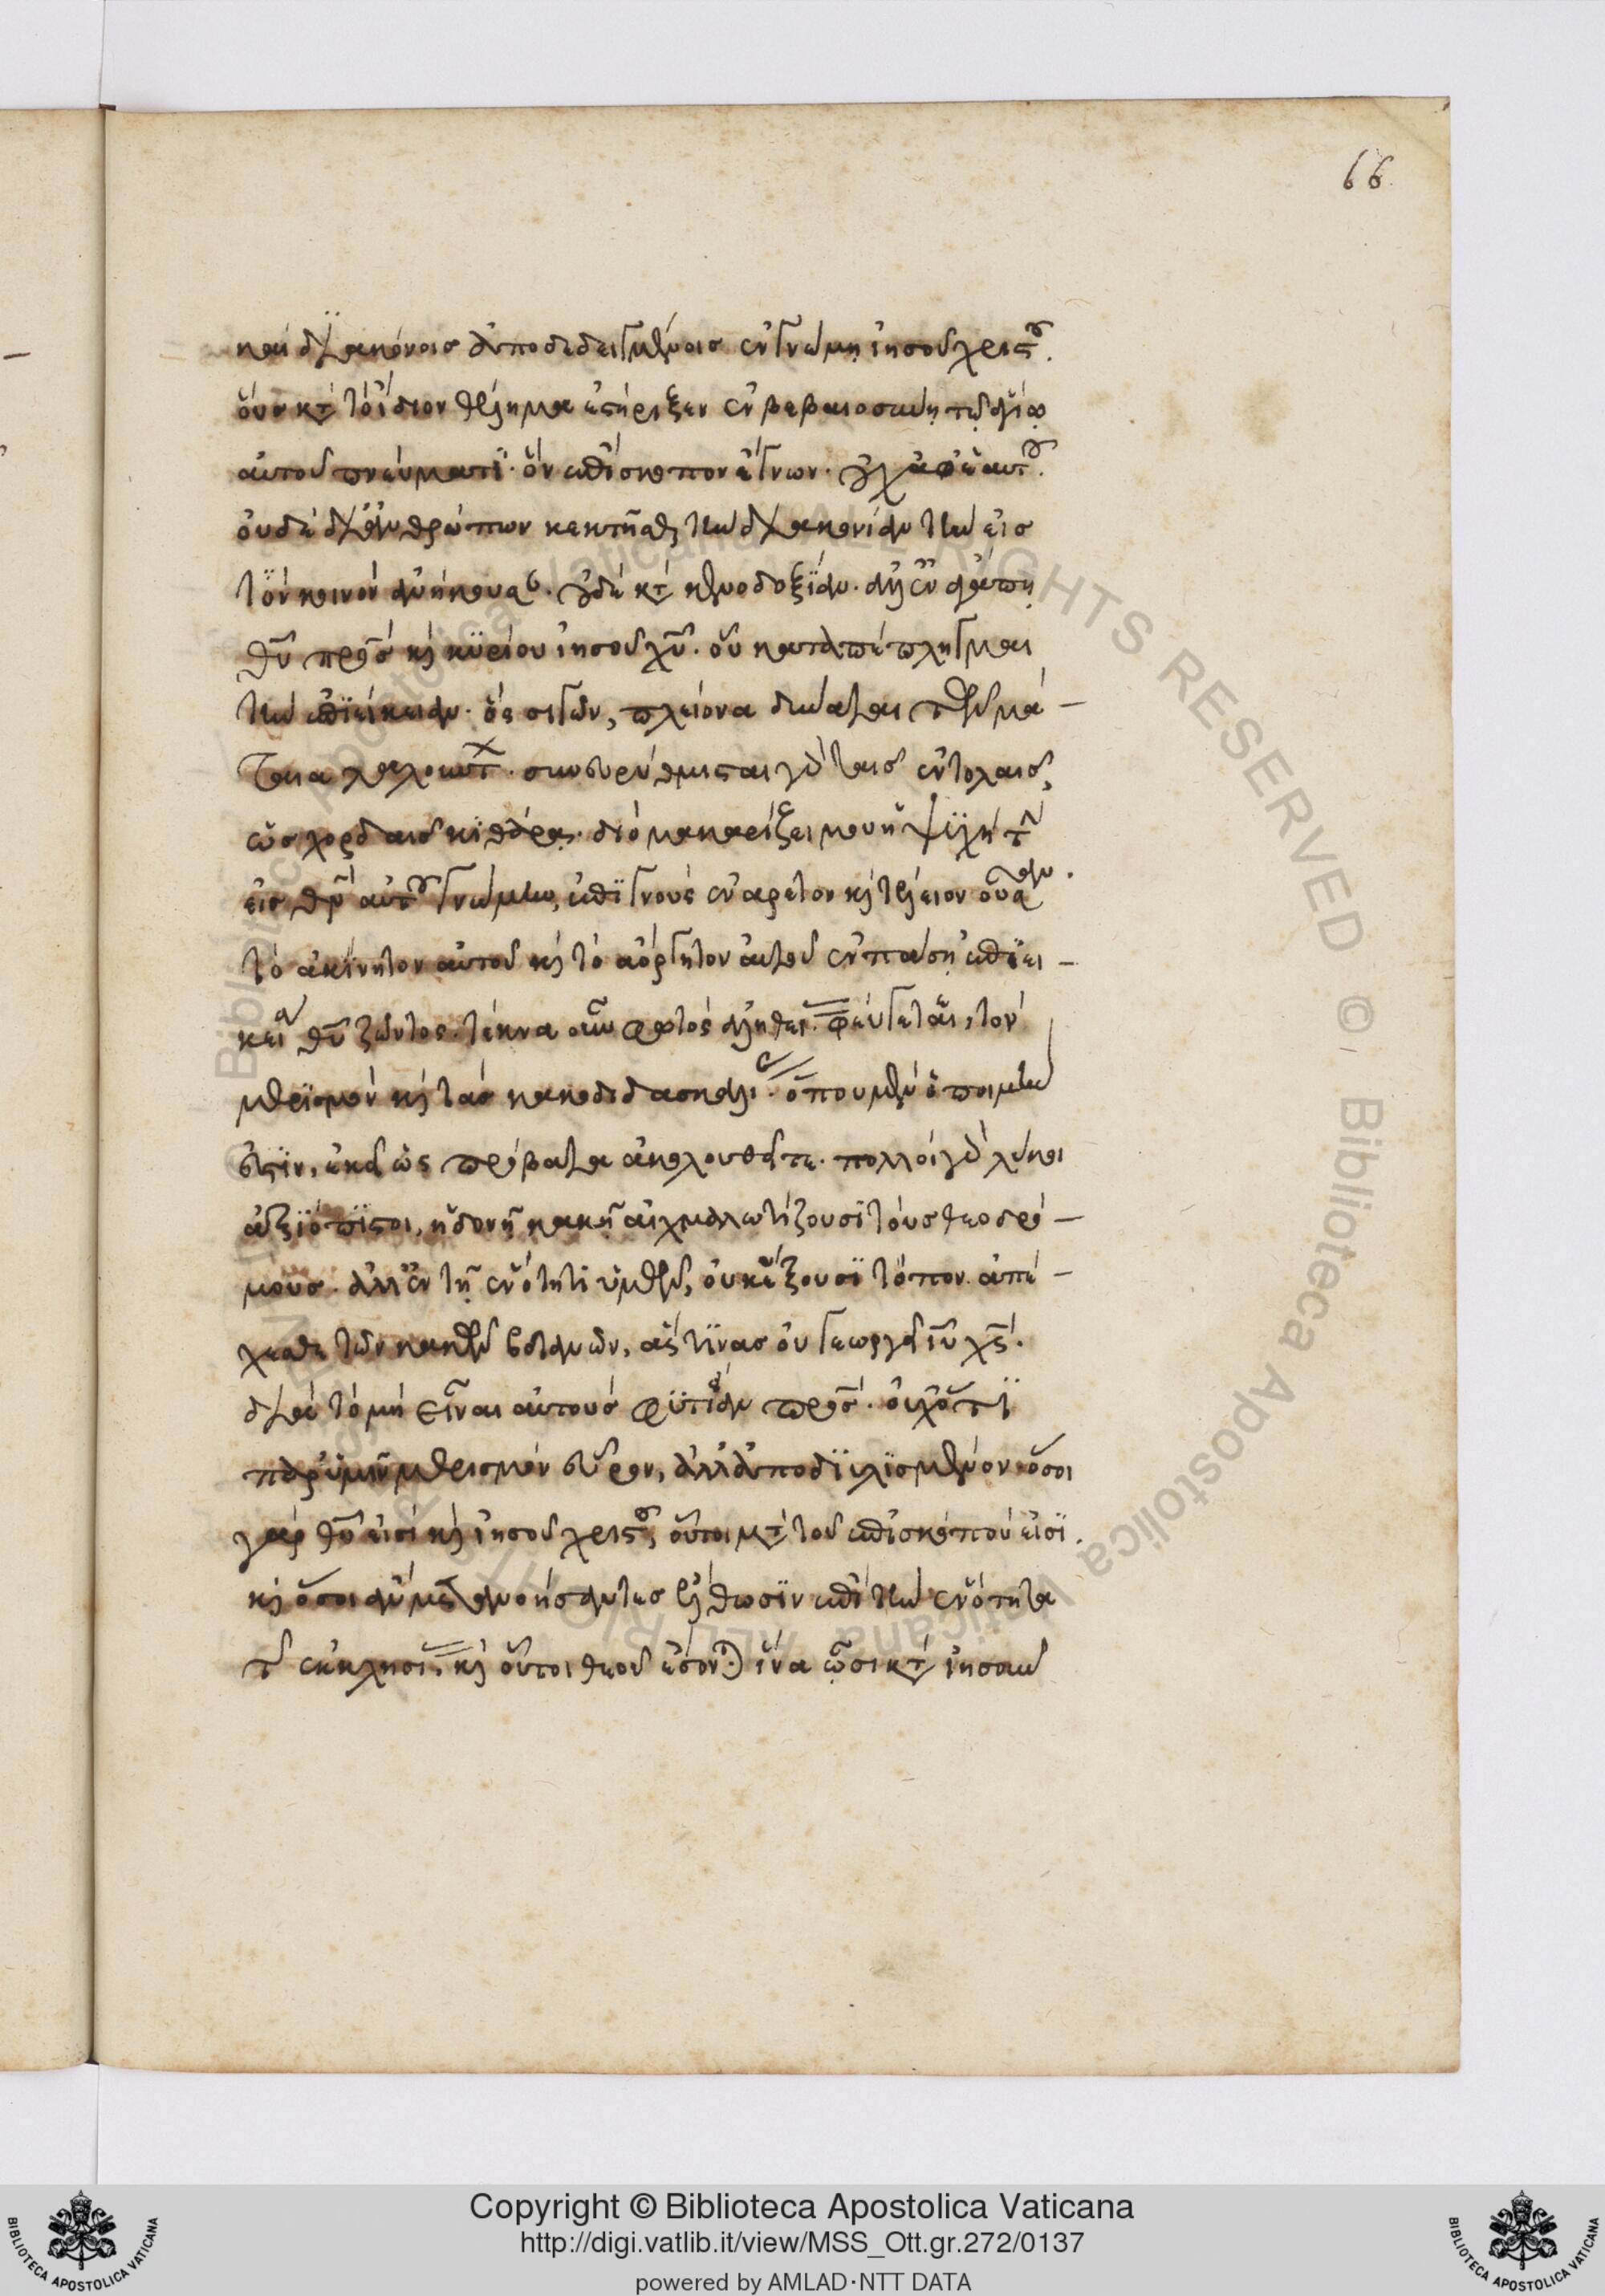 66
καὶ διακόνοις ἀποδεδειγμένοις ἐν γνώμῃ ἰησοῦ χριστοῦ.
οὓς κατὰ τὸ ἴδιον θέλημα ἐστήριξεν ἐν βεβαιοσύνῃ τῷ ἁγίῳ
αὐτοῦ πνεύματι. ὃν ἐπίσκοπον ἔγνων. οὐκ ἀφ' ἑαυτοῦ.
οὐδὲ δι' ἀνθρώπων κεκτῆσθαι τὴν διακονίαν τὴν εἰς
τὸν κοινὸν ἀνήκουσαν. οὐδὲ κατὰ κενοδοξίαν. ἀλλ' ἐν ἀγάπῃ
θυ πρσ καὶ κυρίου ἰησοῦ χυ. οὗ καταπέπληγμαι
τὴν ἐπιείκειαν. ὃς σιγῶν, πλείονα δύναται τῶν μά-
ταια λαλούντων. συνευρύθμισται γὰρ ταῖς ἐντολαῖς,
ὡς χορδαῖς κιθάρα. διὸ μακαρίζει μου ἡ ψυχὴ τὴν
εἰς θν αὐτοῦ γνώμην, ἐπιγνοὺς ἐνάρετον καὶ τέλειον οὖσαν.
τὸ ἀκίνητον αὐτοῦ καὶ τὸ ἀόργητον αὐτοῦ ἐν πάσῃ ἐπιει-
κείᾳ θυ ζῶντος. τέκνα οὖν φωτὸς ἀληθείας. φεύγετε, τὸν
μερισμὸν καὶ τὰς κακοδιδασκαλίας. ὅπου μὲν ὁ ποιμὴν
ἐστὶν, ἐκεῖ ὡς πρόβατα ἀκολουθεῖτε. πολλοὶ γὰρ λύκοι
ἀξιόπιστοι, ἡδονῇ κακῇ αἰχμαλωτίζουσι τοὺς θεοδρό-
μους. ἀλλ' ἐν τῇ ἑνότητι ὑμῶν, οὐκ ἕξουσι τόπον. ἀπέ-
χεσθε τῶν κακῶν βοτανῶν, ἅς τινας οὐ γεωργεῖ ιυ χς.
διὰ τὸ μὴ εἶναι αὐτοὺς φυτίαν πρς. οὐχ ὅτι
παρ' ὑμῖν μερισμὸν εὗρον, ἀλλ' ἀποδιυλισμένον. ὅσοι
γὰρ θυ εἰσὶ καὶ ἰησοῦ χριστοῦ, οὗτοι μετὰ τοῦ ἐπισκόπου εἰσί.
καὶ ὅσοι ἂν μετανοήσαντες ἔλθωσιν ἐπὶ τὴν ἑνότητα
τῆς ἐκκλησίας. καὶ οὗτοι θεοῦ ἔσονται ἵνα ὦσι κατὰ ἰησοῦν
Copyright © Biblioteca Apostolica Vaticana
http://digi.vatlib.it/view/MSS_Ott.gr.272/0137
powered by AMLAD·NTT DATA